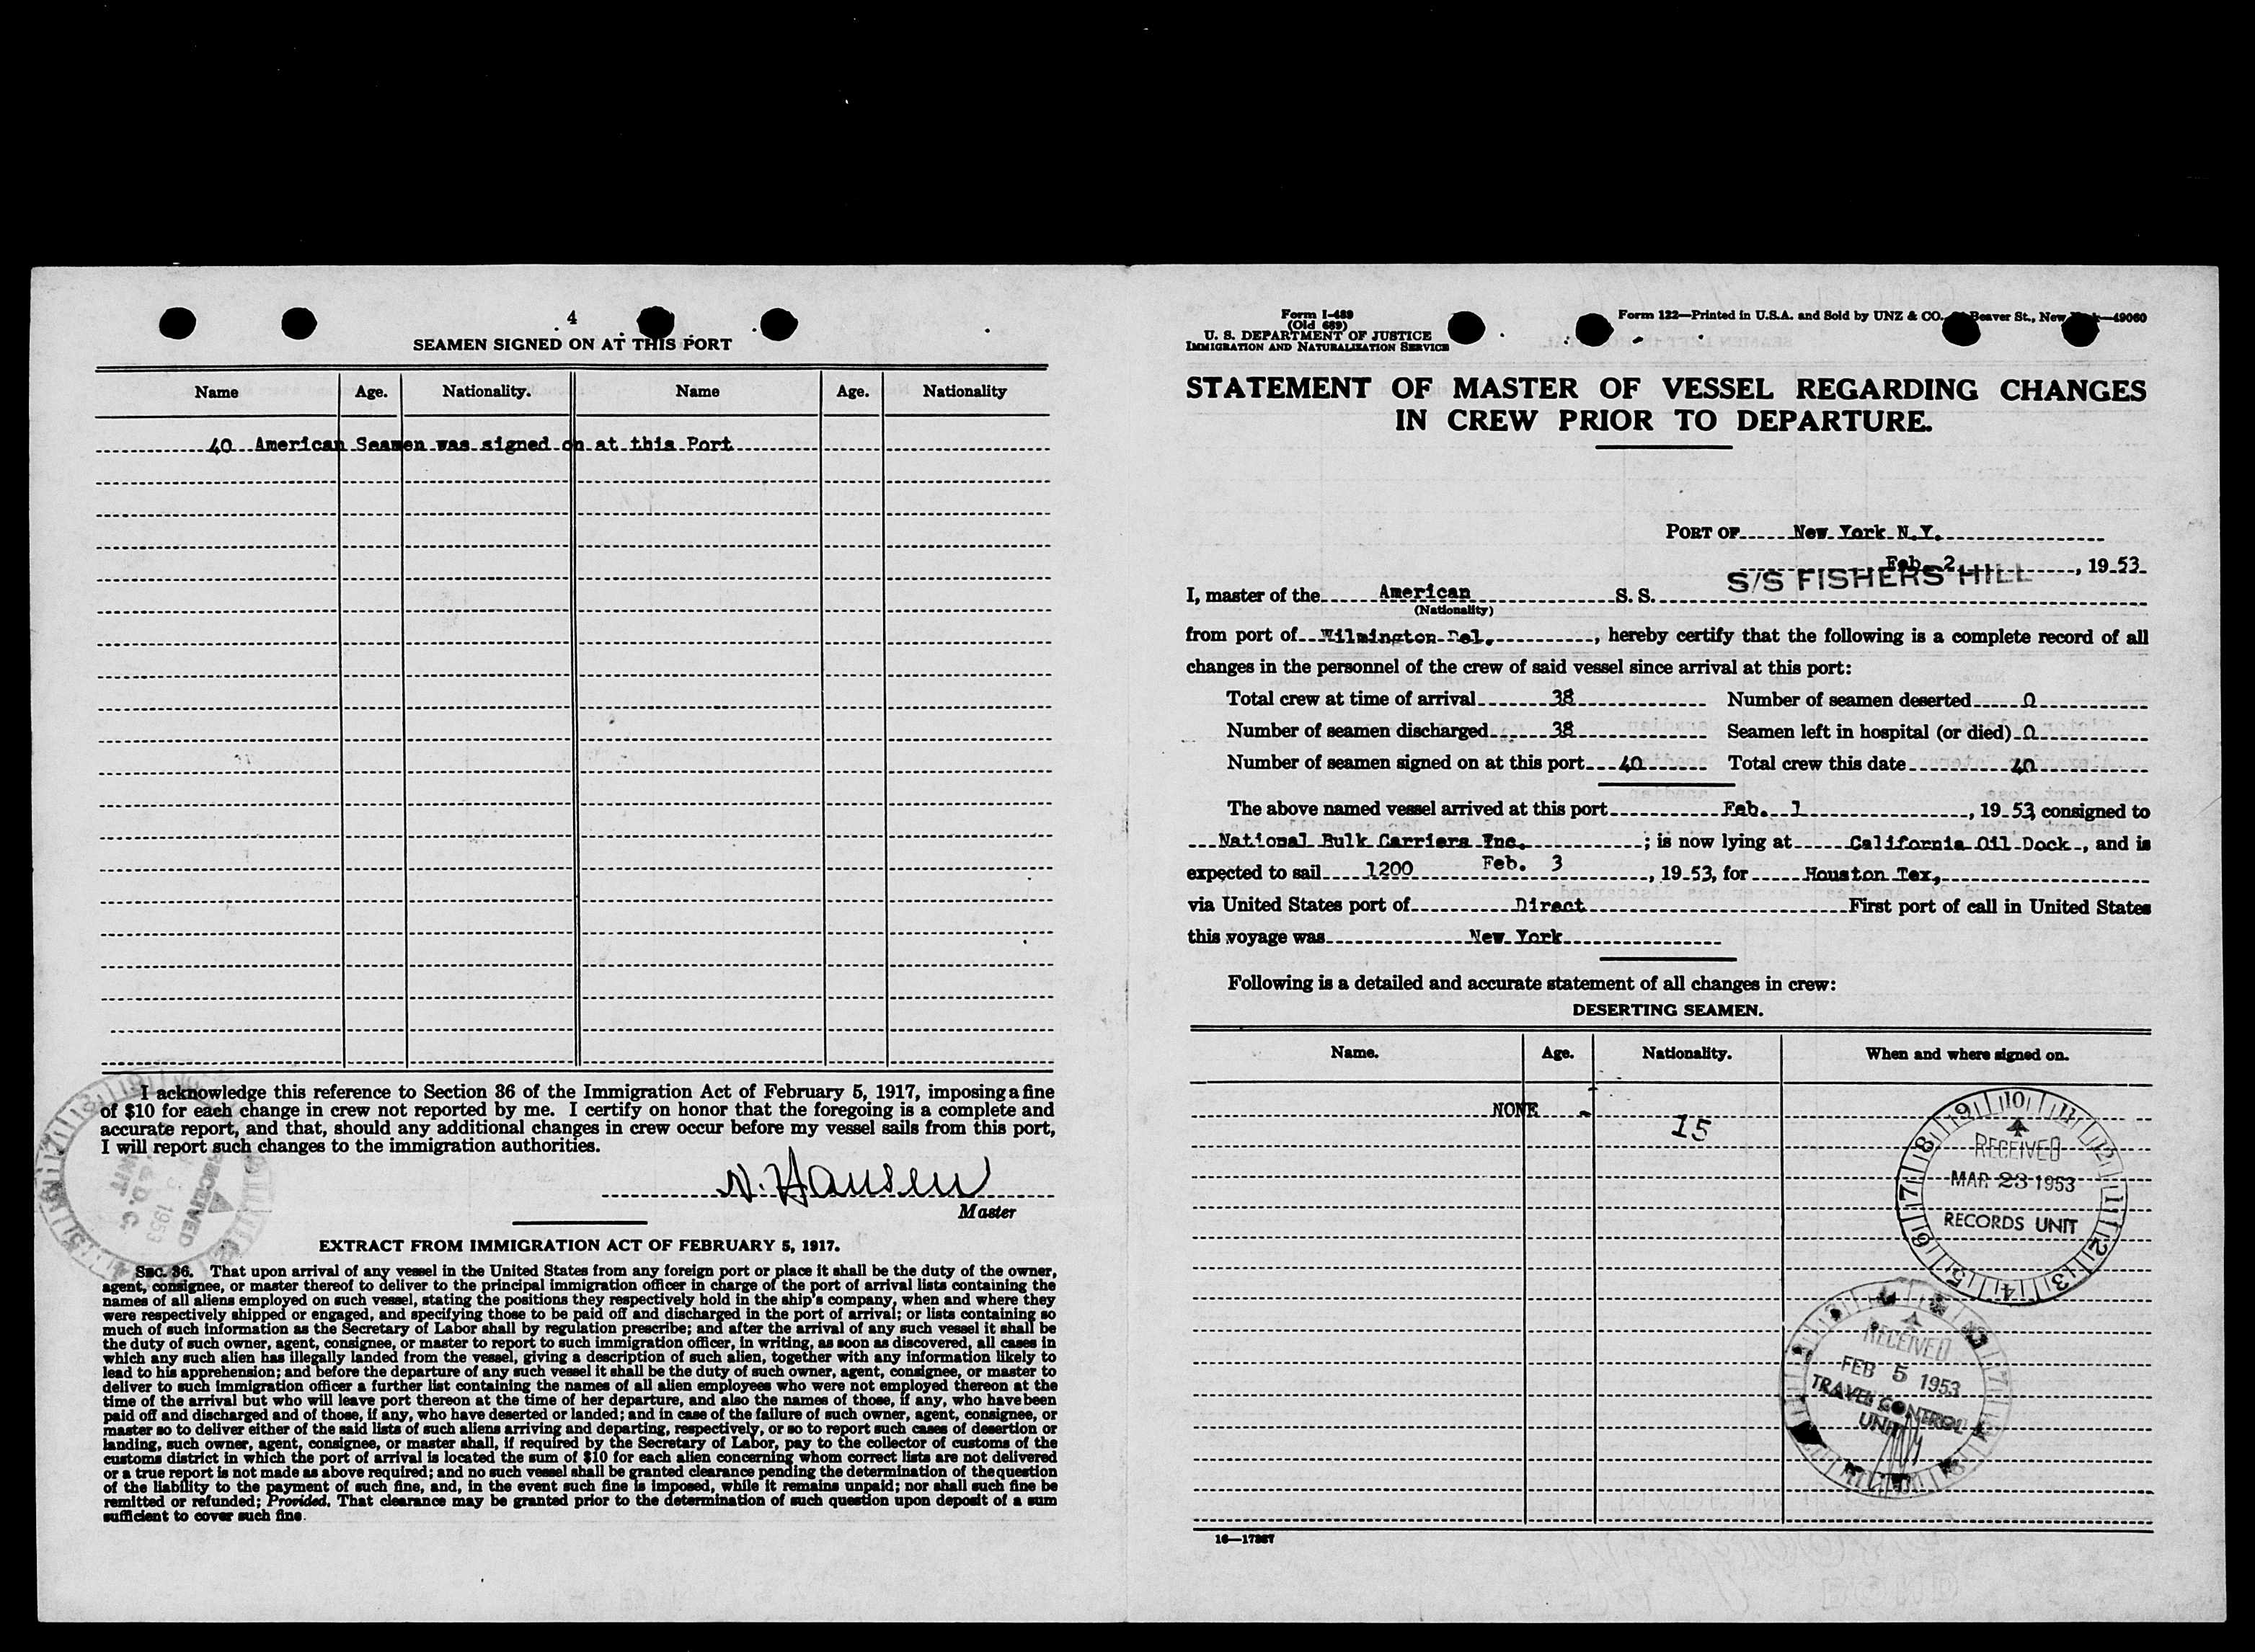 4
SEAMEN SIGNED ON AT THIS PORT
Name Age. Nationality. Name Age. Nationality
40 American Seamen was signed on at this Port
I acknowledge this reference to Section 36 of the Immigration Act of February 5, 1917, imposing a fine
of $10 for each change in crew not reported by me. I certify on honor that the foregoing is a complete and
accurate report, and that, should any additional changes in crew occur before my vessel sails from this port,
I will report such changes to the immigration authorities.
N. Hansen
Master
RECEIVED
1953
UNIT
EXTRACT FROM IMMIGRATION ACT OF FEBRUARY 5, 1917.
SEC. 36. That upon arrival of any vessel in the United States from any foreign port or place it shall be the duty of the owner,
agent, consignee, or master thereof to deliver to the principal immigration officer in charge of the port of arrival lists containing the
names of all aliens employed on such vessel, stating the positions they respectively hold in the ship's company, when and where they
were respectively shipped or engaged, and specifying those to be paid off and discharged in the port of arrival; or lists containing so
much of such information as the Secretary of Labor shall by regulation prescribe; and after the arrival of any such vessel it shall be
the duty of such owner, agent, consignee, or master to report to such immigration officer, in writing, as soon as discovered, all cases in
which any such alien has illegally landed from the vessel, giving a description of such alien, together with any information likely to
lead to his apprehension; and before the departure of any such vessel it shall be the duty of such owner, agent, consignee, or master to
deliver to such immigration officer a further list containing the names of all alien employees who were not employed thereon at the
time of the arrival but who will leave port thereon at the time of her departure, and also the names of those, if any, who have been
paid off and discharged and of those, if any, who have deserted or landed; and in case of the failure of such owner, agent, consignee, or
master so to deliver either of the said lists of such aliens arriving and departing, respectively, or so to report such cases of desertion or
landing, such owner, agent, consignee, or master shall, if required by the Secretary of Labor, pay to the collector of customs of the
customs district in which the port of arrival is located the sum of $10 for each alien concerning whom correct lists are not delivered
or a true report is not made as above required; and no such vessel shall be granted clearance pending the determination of the question
of the liability to the payment of such fine, and, in the event such fine is imposed, while it remains unpaid; nor shall such fine be
remitted or refunded; Provided, That clearance may be granted prior to the determination of such question upon deposit of a sum
sufficient to cover such fine.
Form I-489
(Old 689)
U. S. DEPARTMENT OF JUSTICE
IMMIGRATION AND NATURALIZATION SERVICE
Form 122—Printed in U.S.A. and Sold by UNZ & CO., Beaver St., New —49060
STATEMENT OF MASTER OF VESSEL REGARDING CHANGES
IN CREW PRIOR TO DEPARTURE.
PORT OF New York N.Y.
Feb. 2, 1953
I, master of the American S. S. S/S FISHERS HILL
(Nationality)
from port of Wilmington Del., hereby certify that the following is a complete record of all
changes in the personnel of the crew of said vessel since arrival at this port:
Total crew at time of arrival 38 Number of seamen deserted 0
Number of seamen discharged 38 Seamen left in hospital (or died) 0
Number of seamen signed on at this port 40 Total crew this date 40
The above named vessel arrived at this port Feb. 1, 1953, consigned to
National Bulk Carriers Inc. ; is now lying at California Oil Dock, and is
expected to sail 1200 Feb. 3, 1953, for Houston Tex,
via United States port of Direct First port of call in United States
this voyage was New York
Following is a detailed and accurate statement of all changes in crew:
DESERTING SEAMEN.
Name. Age. Nationality. When and where signed on.
NONE -
15
RECEIVED
MAR 23 1953
RECORDS UNIT
RECEIVED
FEB 5 1953
TRAVEL CONTROL
UNIT
16—17367